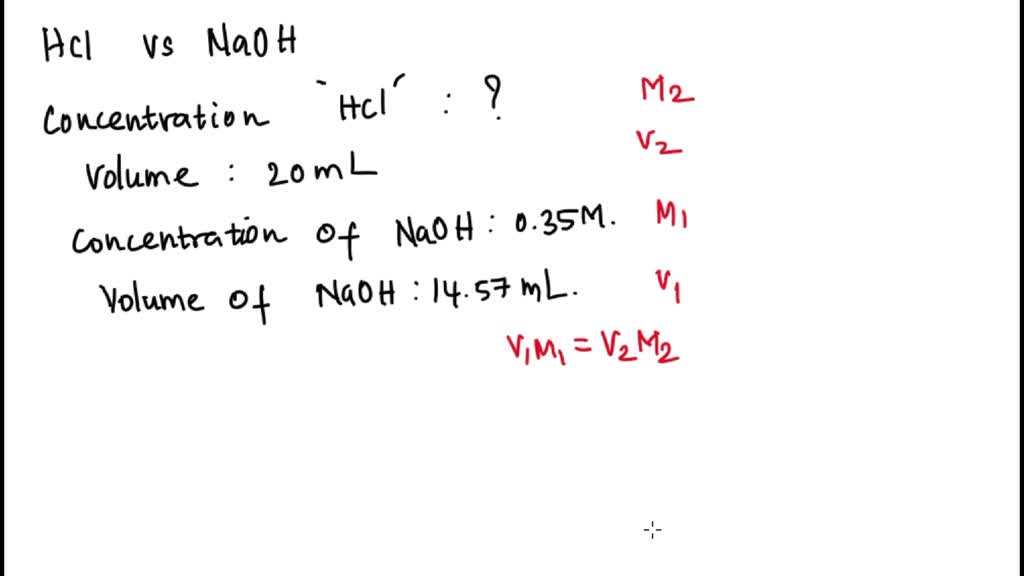 HCl vs NaOH
Concentration `HCl´ : ? M2
Volume : 20 mL V2
Concentration of NaOH : 0.35M. M1
Volume of NaOH : 14.57 mL. V1
V1M1 = V2M2